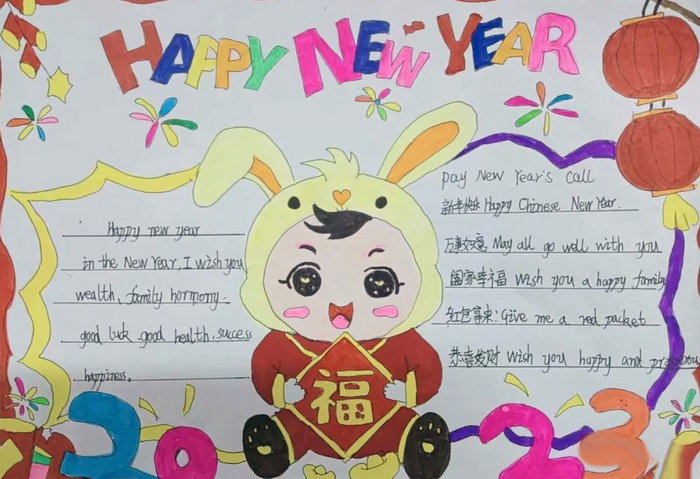 HAPPY NEW YEAR
pay New Year's call
新年快乐 Happy Chinese New Year.
万事如意 May all go well with you
阖家幸福 wish you a happy family
红包拿来: Give me a red packet
恭喜发财 wish you happy and prosperous
Happy new year
in the New Year, I wish you
wealth, family hormony.
good luck .good health. success
happiness.
福
2023